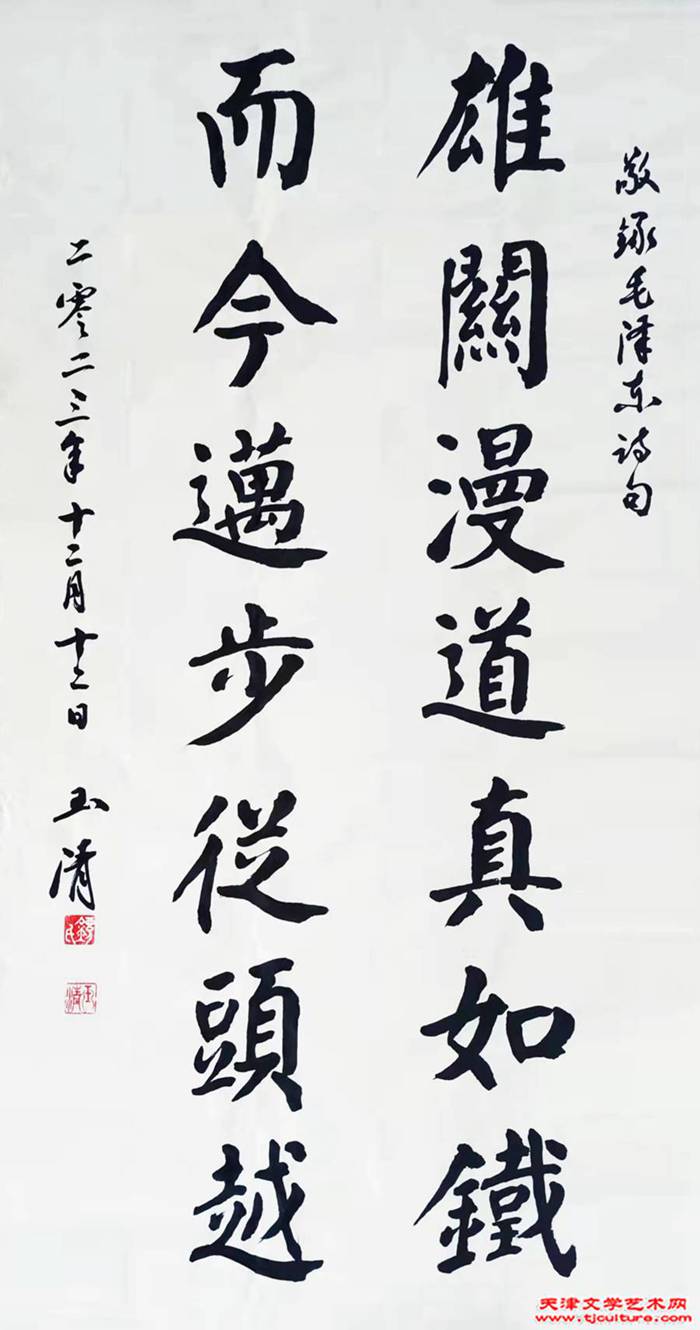 敬録毛泽东诗句
雄關漫道真如鐵
而今邁步從頭越
二零二三年十二月十二日
玉清
天津文学艺术网
www.tjculture.com